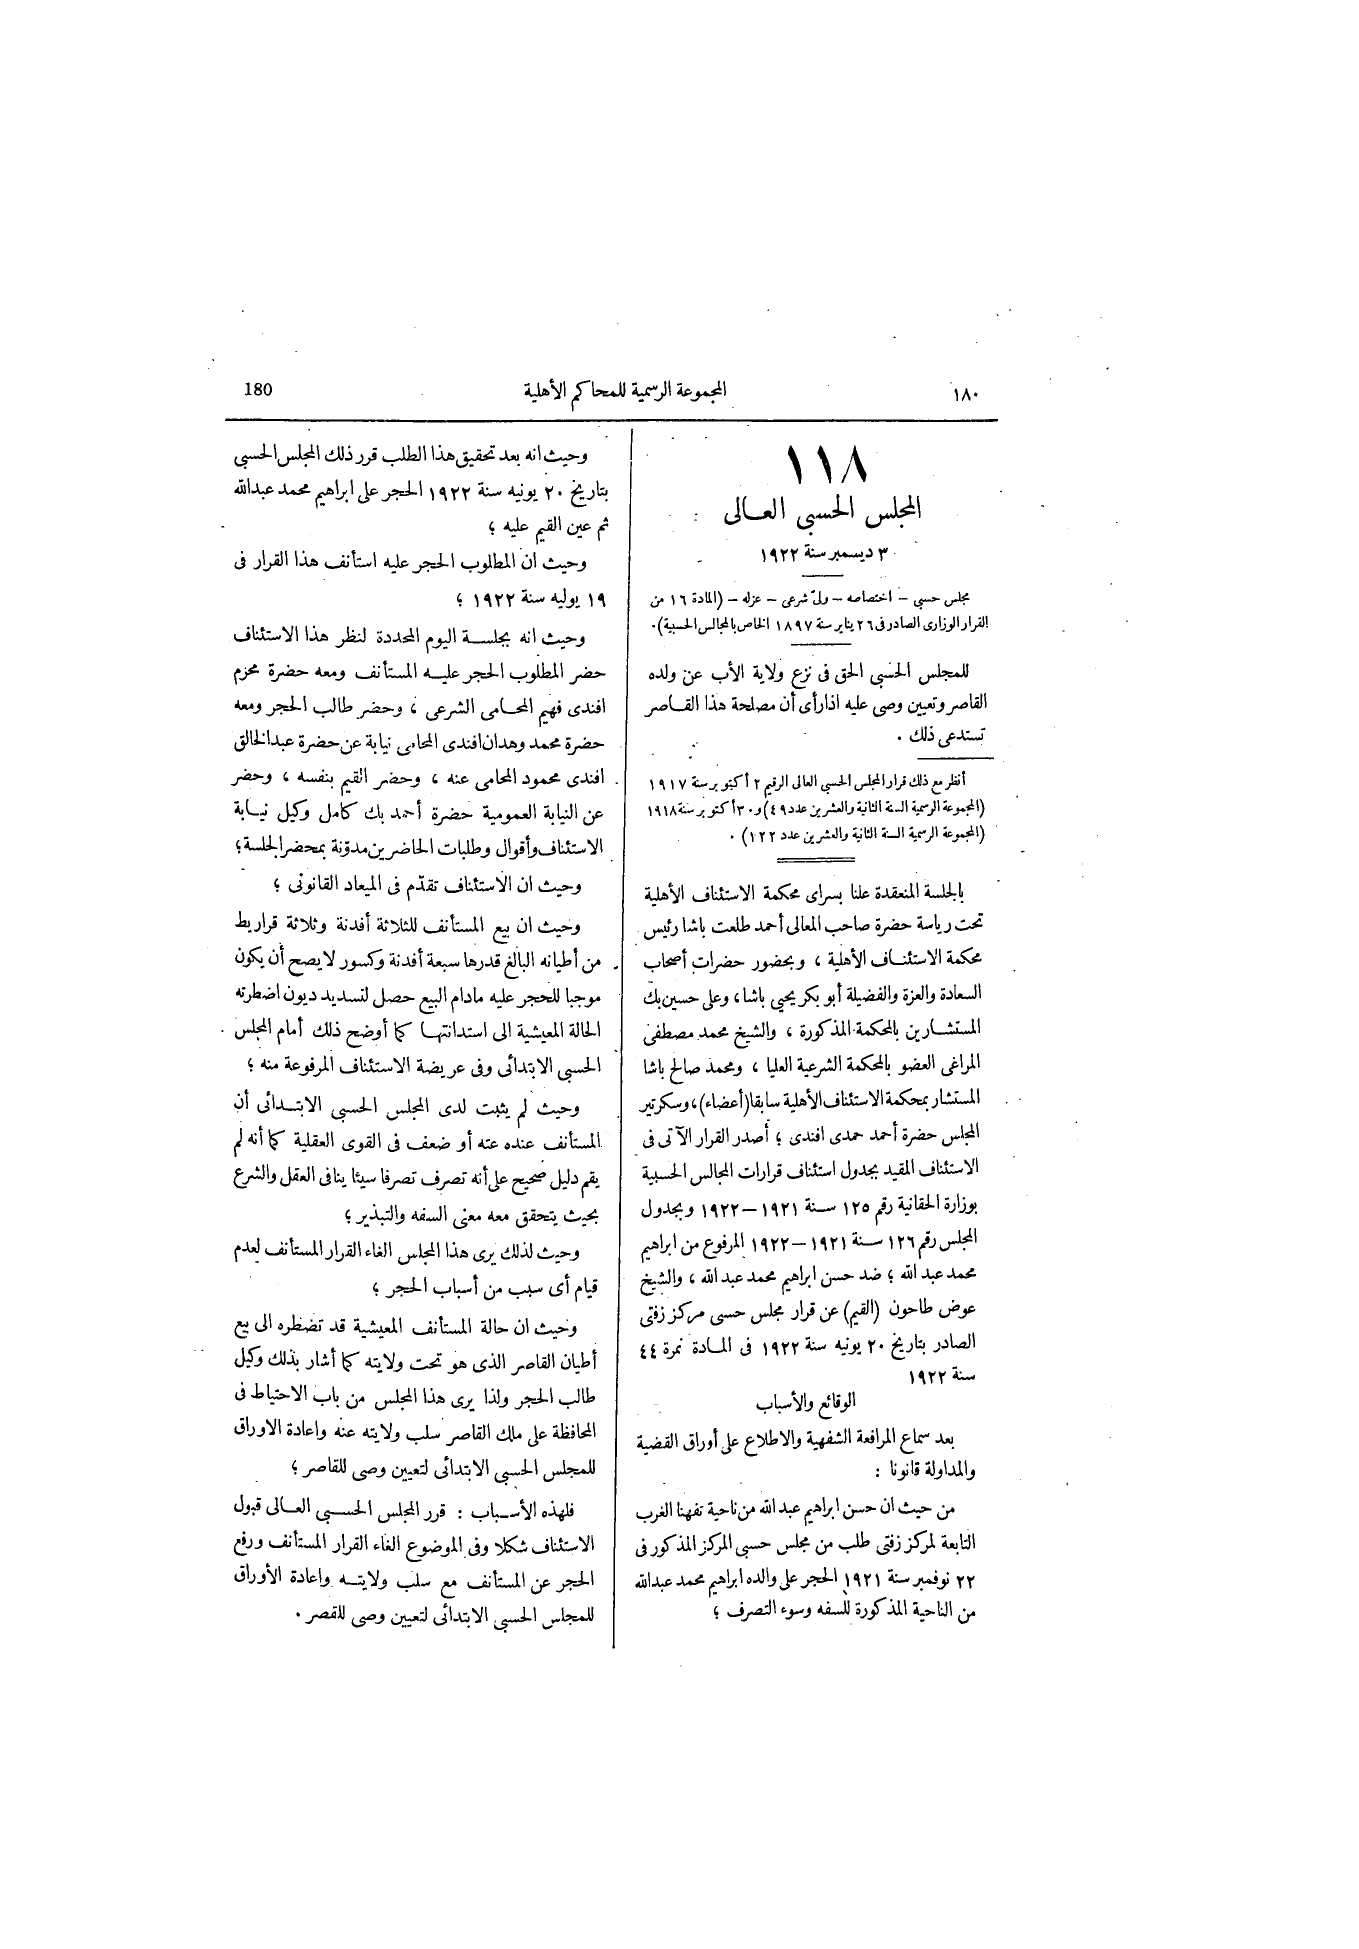 ١٨٠
المجموعة الرسمية للمحاكم الأهلية
180
١١٨
المجلس الحسبى العالى
٣ ديسمبر سنة ١٩٢٢
مجلس حسبى – اختصاصه – ولىّ شرعى – عزله – (المادة ١٦ من
القرار الوزارى الصادر فى ٢٦ يناير سنة ١٨٩٧ الخاص بالمجالس الحسبية).
للمجلس الحسبى الحق فى نزع ولاية الأب عن ولده
القاصر وتعيين وصى عليه اذا رأى أن مصلحة هذا القاصر
تستدعى ذلك .
أنظر مع ذلك قرار المجلس الحسبى العالى الرقيم ٢ أكتوبر سنة ١٩١٧
(المجموعة الرسمية السنة الثانية والعشرين عدد ٤٩) و٣٠ أكتوبر سنة ١٩١٨
(المجموعة الرسمية السنة الثانية والعشرين عدد ١٢٢) .
بالجلسة المنعقدة علنا بسراى محكمة الاستئناف الأهلية
تحت رياسة حضرة صاحب المعالى أحمد طلعت باشا رئيس
محكمة الاستئناف الأهلية ، وبحضور حضرات أصحاب
السعادة والعزة والفضيلة أبو بكر يحيى باشا، وعلى حسين بك
المستشارين بالمحكمة المذكورة ، والشيخ محمد مصطفى
المراغى العضو بالمحكمة الشرعية العليا ، ومحمد صالح باشا
المستشار بمحكمة الاستئناف الأهلية سابقا (أعضاء)، وسكرتير
المجلس حضرة أحمد حمدى افندى ؛ أصدر القرار الآتى فى
الاستئناف المقيد بجدول استئناف قرارات المجالس الحسبية
بوزارة الحقانية رقم ١٢٥ سنة ١٩٢١ – ١٩٢٢ وبجدول
المجلس رقم ١٢٦ سنة ١٩٢١ – ١٩٢٢ المرفوع من ابراهيم
محمد عبد الله ؛ ضد حسن ابراهيم محمد عبد الله ، والشيخ
عوض طاحون (القيم) عن قرار مجلس حسبى مركز زفتى
الصادر بتاريخ ٢٠ يونيه سنة ١٩٢٢ فى المادة نمرة ٤٤
سنة ١٩٢٢
الوقائع والأسباب
بعد سماع المرافعة الشفهية والاطلاع على أوراق القضية
والمداولة قانونا :
من حيث ان حسن ابراهيم عبد الله من ناحية تفهنا الغرب
التابعة لمركز زفتى طلب من مجلس حسبى المركز المذكور فى
٢٢ نوفمبر سنة ١٩٢١ الحجر على والده ابراهيم محمد عبدالله
من الناحية المذكورة للسفه وسوء التصرف ؛
وحيث انه بعد تحقيق هذا الطلب قرر ذلك المجلس الحسبى
بتاريخ ٢٠ يونيه سنة ١٩٢٢ الحجر على ابراهيم محمد عبدالله
ثم عين القيم عليه ؛
وحيث ان المطلوب الحجر عليه استأنف هذا القرار فى
١٩ يوليه سنة ١٩٢٢ ؛
وحيث انه بجلسة اليوم المحددة لنظر هذا الاستئناف
حضر المطلوب الحجر عليه المستأنف ومعه حضرة محزم
افندى فهيم المحامى الشرعى ، وحضر طالب الحجر ومعه
حضرة محمد وهدان افندى المحامى نيابة عن حضرة عبدالخالق
افندى محمود المحامى عنه ، وحضر القيم بنفسه ، وحضر
عن النيابة العمومية حضرة أحمد بك كامل وكيل نيابة
الاستئناف وأقوال وطلبات الحاضرين مدوّنة بمحضر الجلسة ؛
وحيث ان الاستئناف تقدّم فى الميعاد القانونى ؛
وحيث ان بيع المستأنف للثلاثة أفدنة وثلاثة قراريط
من أطيانه البالغ قدرها سبعة أفدنة وكسور لا يصح أن يكون
موجبا للحجر عليه مادام البيع حصل لتسديد ديون اضطرته
الحالة المعيشية الى استدانتها كما أوضح ذلك أمام المجلس
الحسبى الابتدائى وفى عريضة الاستئناف المرفوعة منه ؛
وحيث لم يثبت لدى المجلس الحسبى الابتدائى أن
المستأنف عنده عته أو ضعف فى القوى العقلية كما أنه لم
يقم دليل صحيح على أنه تصرف تصرفا سيئا ينافى العقل والشرع
بحيث يتحقق معه معنى السفه والتبذير ؛
وحيث لذلك يرى هذا المجلس الغاء القرار المستأنف لعدم
قيام أى سبب من أسباب الحجر ؛
وحيث ان حالة المستأنف المعيشية قد تضطره الى بيع
أطيان القاصر الذى هو تحت ولايته كما أشار بذلك وكيل
طالب الحجر ولذا يرى هذا المجلس من باب الاحتياط فى
المحافظة على ملك القاصر سلب ولايته عنه واعادة الاوراق
للمجلس الحسبى الابتدائى لتعيين وصى للقاصر ؛
فلهذه الأسباب : قرر المجلس الحسبى العالى قبول
الاستئناف شكلا وفى الموضوع الغاء القرار المستأنف ورفع
الحجر عن المستأنف مع سلب ولايته واعادة الأوراق
للمجلس الحسبى الابتدائى لتعيين وصى للقصر .